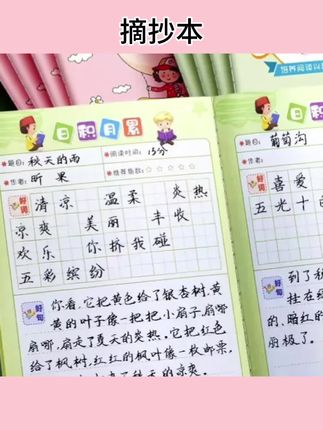 摘抄本
培养阅读
日积月累
题目: 秋天的雨
阅读时间: 15分
作者: 昕果
推荐指数:
好词
清凉 温柔 炎热
凉爽 美丽 丰收
欢乐 你挤我碰
五彩缤纷
好句
你看,它把黄色给了银杏树,黄
黄的叶子像一把把小扇子扇哪
扇哪,扇走了夏天的炎热。它把红色
给了枫树,红红的枫叶像一枚邮票,
了秋天的凉爽
日
题目: 葡萄沟
作者:
好词
喜爱
五光十
好句
到了秋
挂在
的、暗红的
丽极了。